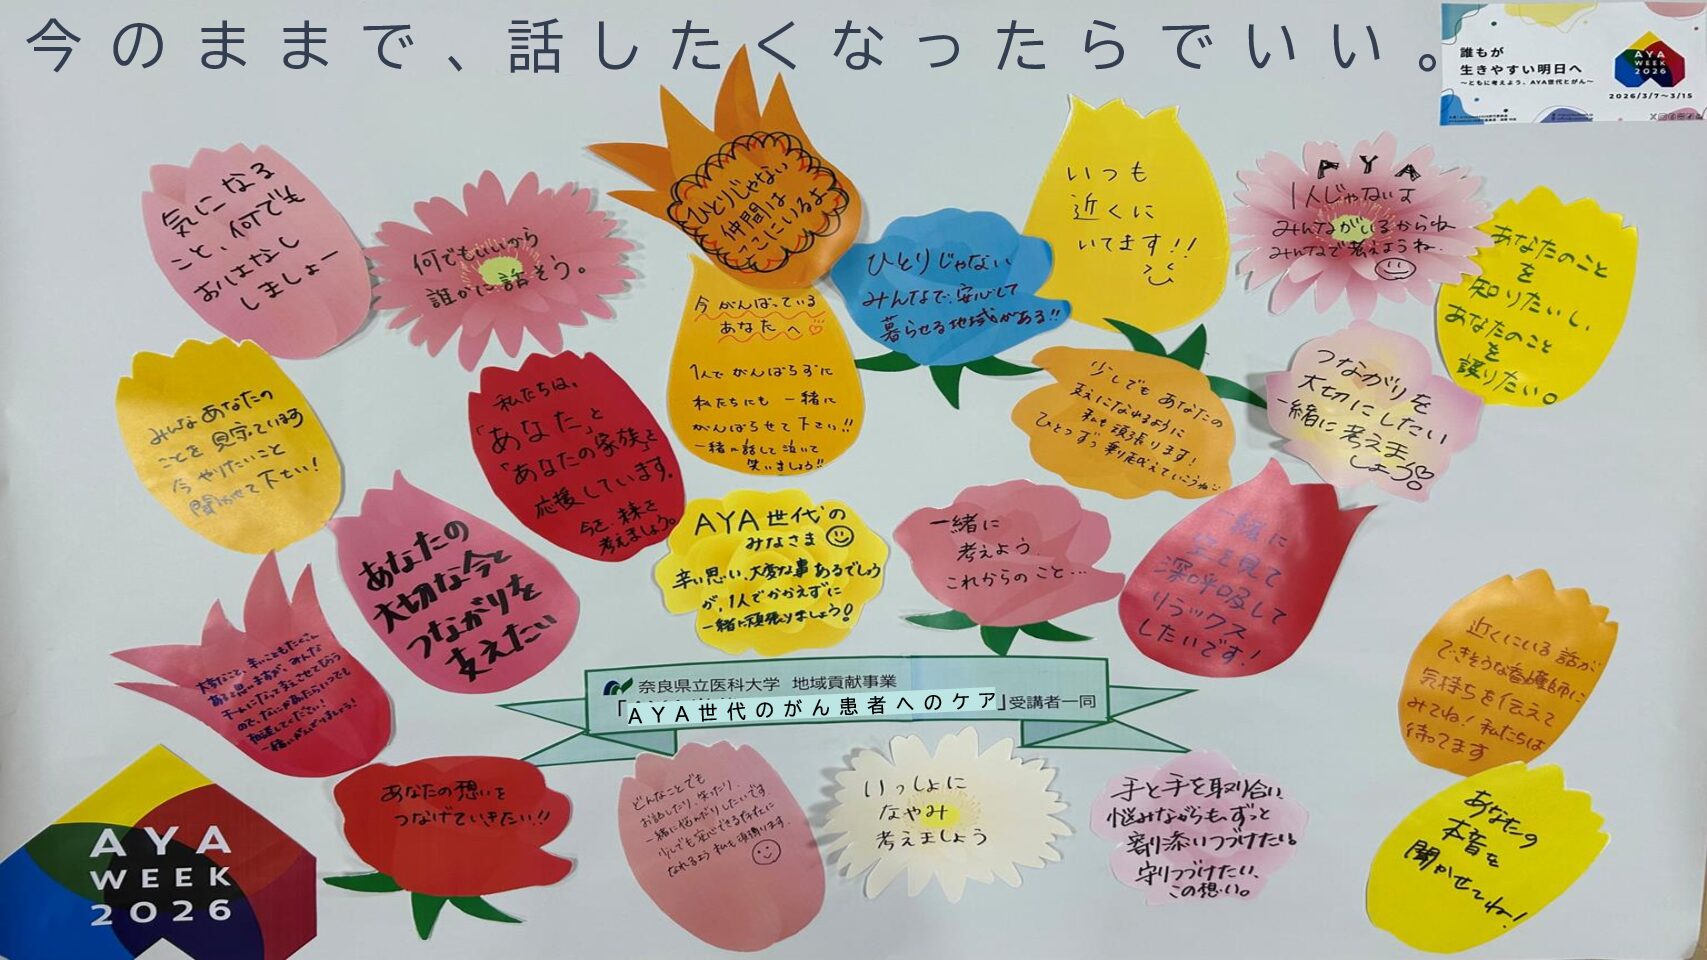 今のままで、話したくなったらでいい。
誰もが
生きやすい明日へ
〜ともに考えよう、AYA世代とがん〜
AYA
WEEK
2026
2026/3/7〜3/15
気になる
こと、何でも
おはなし
しましょー
何でもいいから
誰かに話そう。
ひとりじゃない
仲間は
ここにいるよ
いつも
近くに
いてます!!
AYA
1人じゃないよ
みんながいるからね
みんなで考えようね
あなたのこと
を
知りたいし
あなたのこと
を
護りたい。
ひとりじゃない
みんなで、安心して
暮らせる地域がある!!
今がんばっている
あなたへ♡
1人でがんばらずに
私たちにも一緒に
がんばらせて下さい!!
一緒に話して泣いて
笑いましょう!!
みんなあなたの
ことを見守っています
今やりたいこと
聞かせて下さい!
私たちは、
「あなた」と
「あなたの家族」を
応援しています。
今を、未来を
考えましょう。
少しでもあなたの
支えになれるように
私も頑張ります!
ひとつずつ乗り越えていこうね
つながりを
大切にしたい
一緒に考えま
しょう
あなたの
大切な今と
つながりを
支えたい
AYA世代の
みなさま
辛い思い、大変な事あるでしょう
が、1人でかかえずに
一緒に頑張りましょう!
一緒に
考えよう
これからのこと…
一緒に
空を見て
深呼吸して
リラックス
したいです!
大変なこと、辛いこともたくさん
あると思いますが、みんな
チームになって支えさせてもらう
ので、なにかあったらいつでも
相談してください!
一緒にがんばりましょう!
近くにいる話が
できそうな看護師に
気持ちを伝えて
みてね!私たちは
待ってます
奈良県立医科大学 地域貢献事業
「AYA世代のがん患者へのケア」受講者一同
あなたの想いを
つなげていきたい!!
どんなことでも
お話したり、笑ったり、
一緒に悩んだりしたいです
少しでも安心できる存在に
なれるよう私も頑張ります。
いっしょに
なやみ
考えましょう
手と手を取り合い
悩みながらも、ずっと
寄り添いつづけたい。
守りつづけたい、
この想い。
あなたの
本音を
聞かせてね!
AYA
WEEK
2026